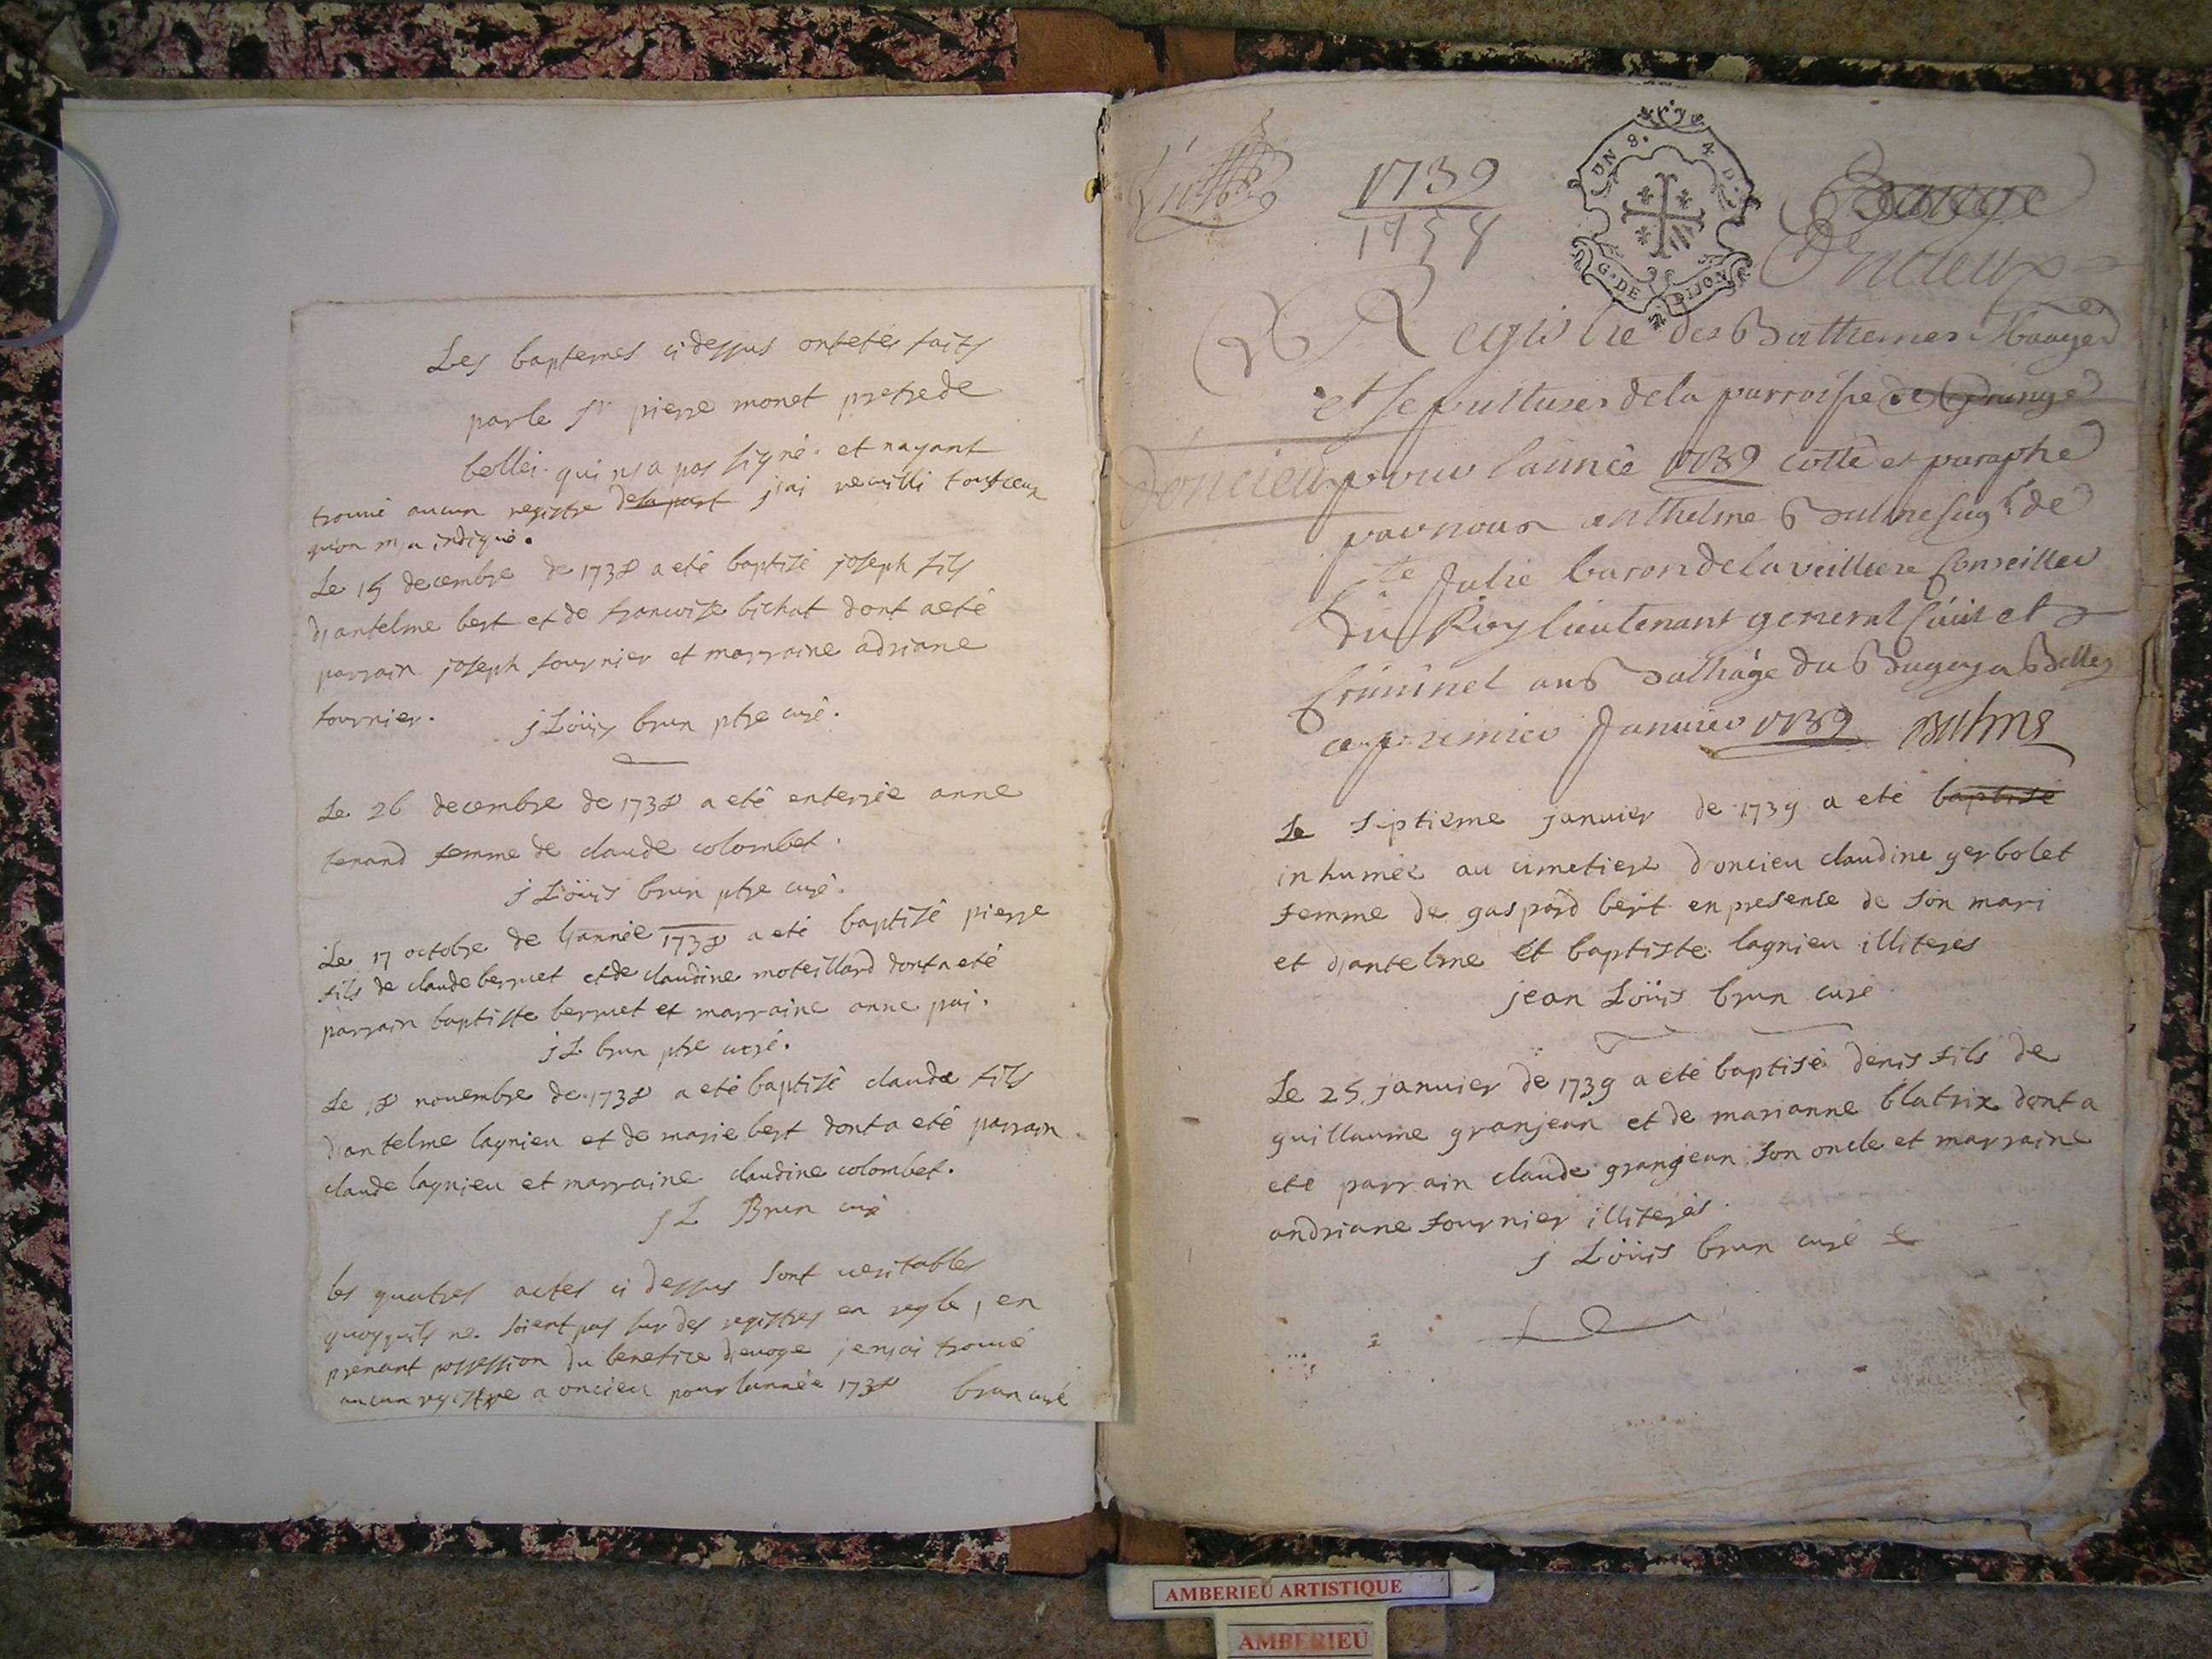 Les baptemes ci dessus ont etés faits
par le Sr pierre monet pretre de
bellei qui n'a pas signé. et nayant
trouvé aucun registre de la part j'ai recuilli tout ceux
qu'on m'a indiqué.
Le 15 decembre de 1738 a eté baptisé joseph fils
d'antelme bert et de francoise bichat dont a eté
parrain joseph fournier et marraine adriane
fournier.
j Loüis brun ptre curé.
Le 26 decembre de 1738 a eté enterrée anne
tenand femme de claude colombet.
j Loüis brun ptre curé.
Le 17 octobre de l'année 1738 a eté baptisé pierre
fils de claude berruet et de claudine moteillard dont a eté
parrain baptiste berruet et marraine anne pui.
j L brun ptre curé.
Le 18 novembre de 1738 a eté baptisé claude fils
d'antelme lagnieu et de marie bert dont a eté parrain
claude lagnieu et marraine claudine colombet.
j L Brun curé
les quatres actes ci dessus sont veritables
quoyquils ne soient pas sur des registres en regle, en
prenant possession du benefice d'evoge je n'ai trouvé
aucun registre a oncieu pour lannée 1738 brun curé
1739
1758
UN S. 4 D.
G. DE DIJON
Evouge
Oncieux
Registre des Bathemes Mariages
et Sepultures de la parroisse de Evouges
d'oncieux pour lannée 1739 cotté et paraphé
par nous anthelme Balme seigr de
Ste Julie baron de la veilliere Conseiller
du Roy lieutenant general Civil et
Criminel au Bailliage du Bugey a Belley
ce premier Janvier 1739 Balme
Le septieme janvier de 1739 a eté baptisé
inhumée au cimetiere d'oncieu claudine gerbolet
femme de gaspard bert en presence de son mari
et d'antelme et baptiste lagnieu illiterés
jean Loüis brun curé
Le 25 janvier de 1739 a eté baptisé denis fils de
guillaume granjean et de marianne blatrix dont a
eté parrain claude grangean son oncle et marraine
andriane fournier illiterés.
j Loüis brun curé
AMBERIEU ARTISTIQUE
AMBERIEU